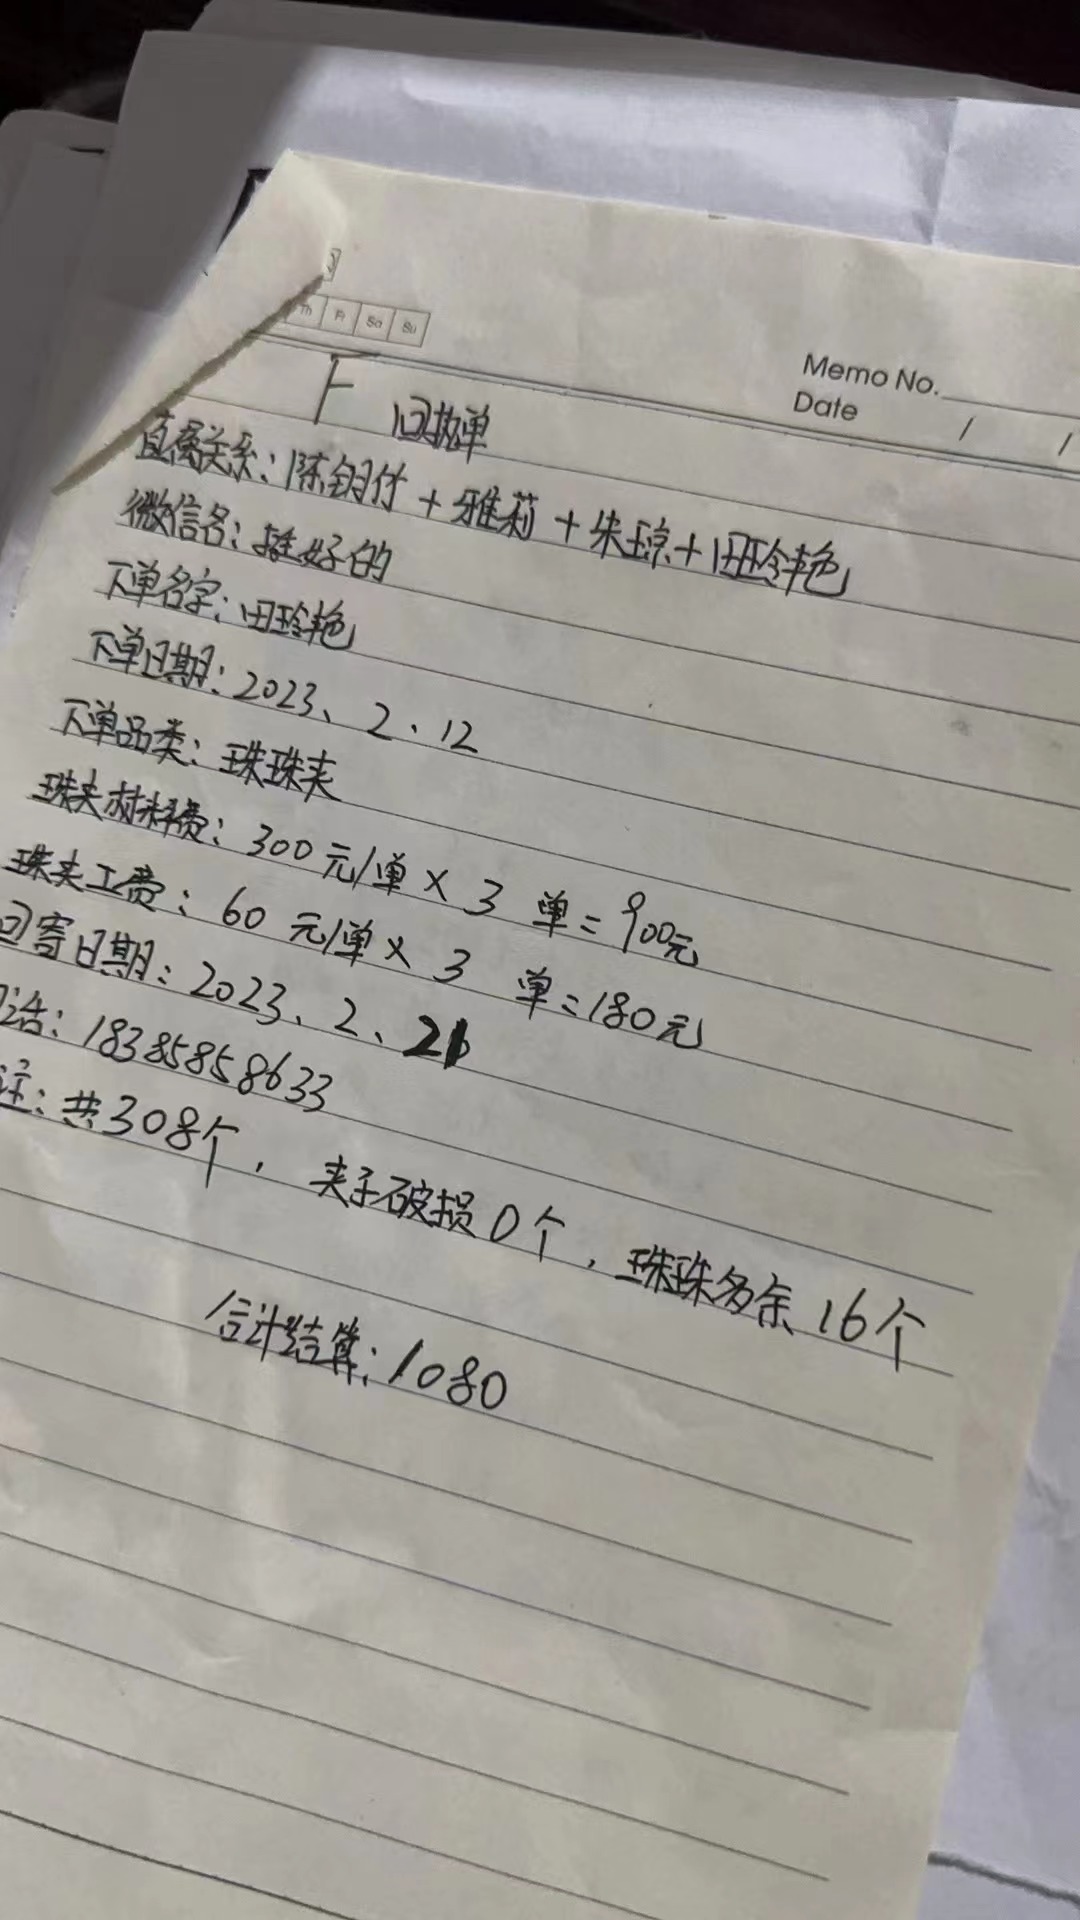 Th Fr Sa Su
Memo No.
Date / /
F 回执单
直属关系：陈钥付+雅莉+朱琼+田玲艳
微信名：挺好的
下单名字：田玲艳
下单日期：2023、2、12
下单品类：珠珠夹
珠夹材料费：300元/单×3 单=900元
珠夹工费：60元/单×3 单=180元
回寄日期：2023、2、21
话：18385858633
注：共308个，夹子破损0个，珠珠多余16个
合计结算：1080